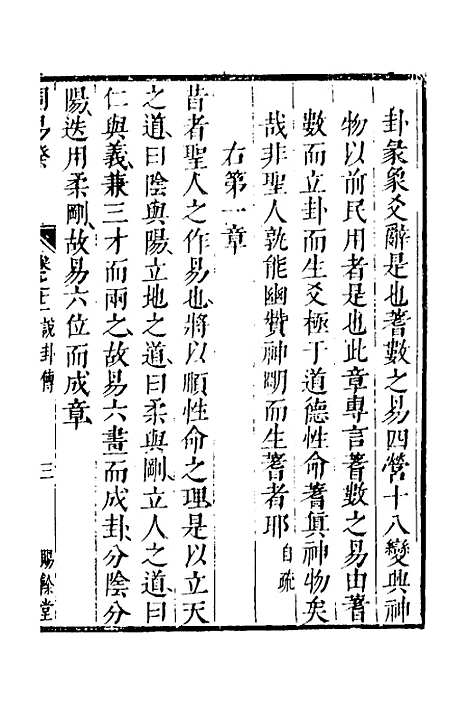 卦彖象爻辭是也蓍數之易四營十八變興神
物以前民用者是也此章專言蓍數之易由蓍
數而立卦而生爻極于道德性命蓍眞神物矣
哉非聖人孰能幽贊神明而生蓍者耶自疏
右第一章
昔者聖人之作易也將以順性命之理是以立天
之道曰陰與陽立地之道曰柔與剛立人之道曰
仁與義兼三才而兩之故易六畫而成卦分陰分
陽迭用柔剛故易六位而成章
周易 說卦傳 三 賜餘堂